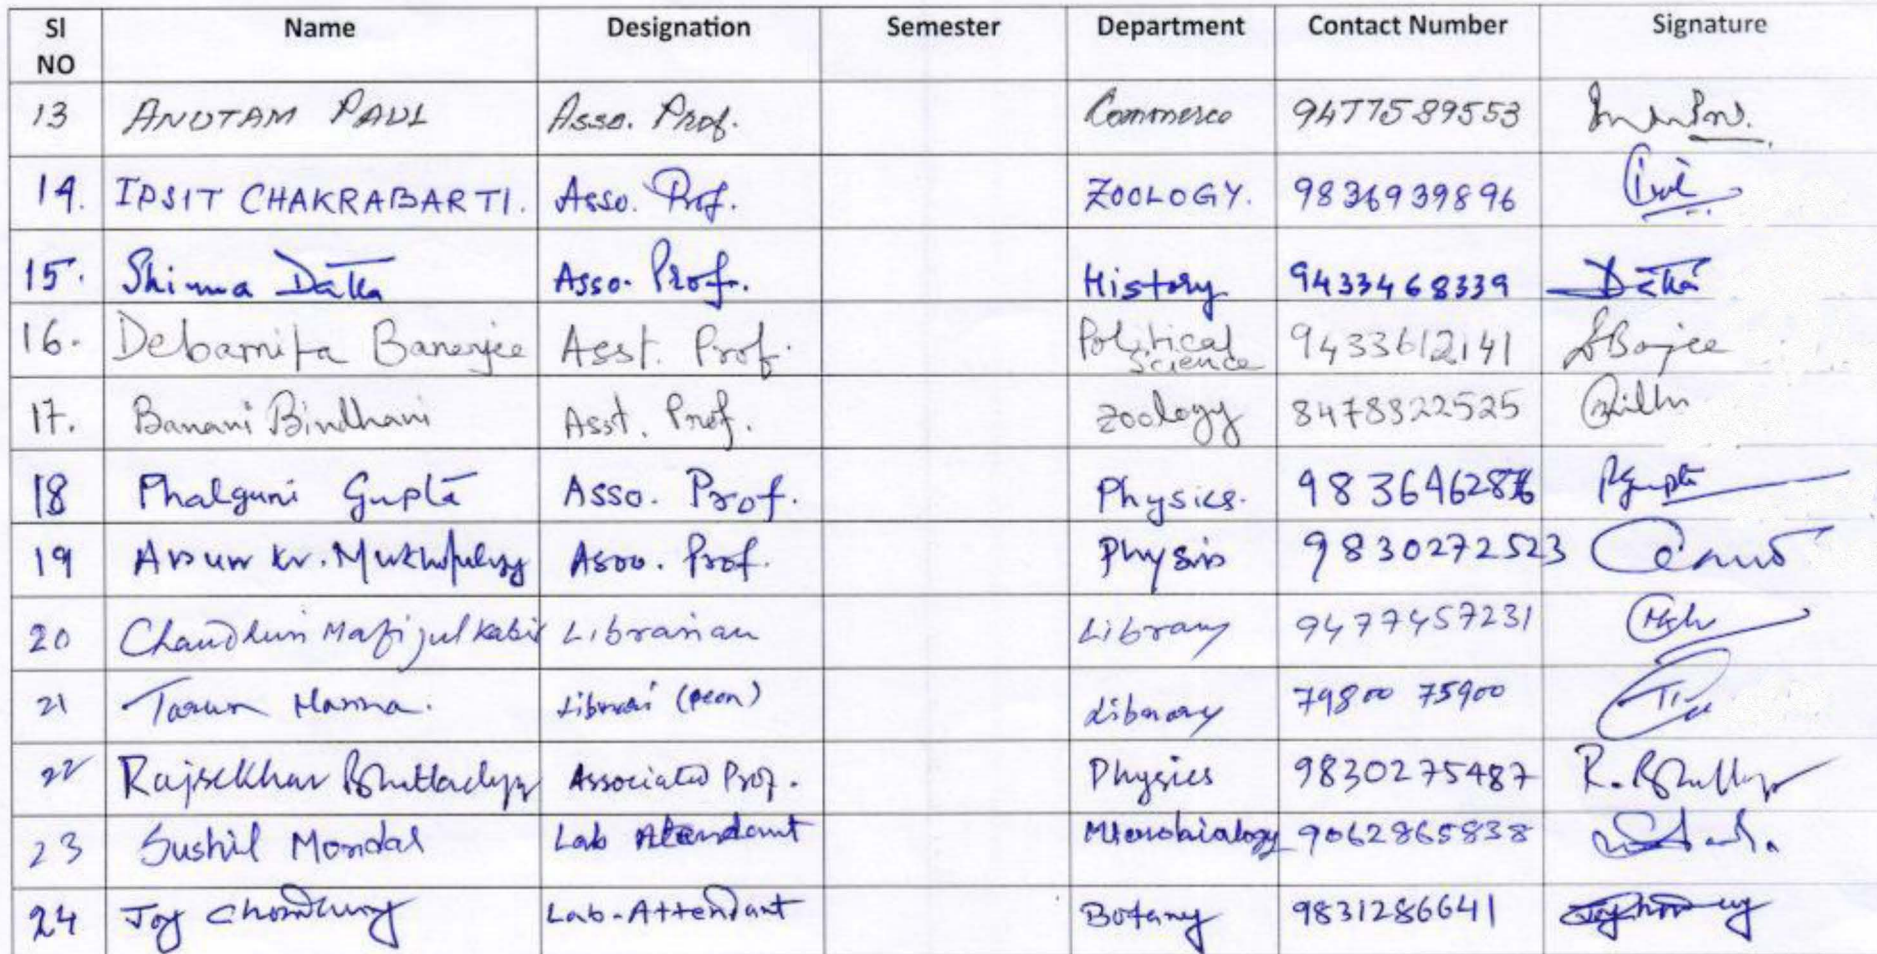 Sl NO Name Designation Semester Department Contact Number Signature
13 ANUTAM PAUL Asso. Prof. Commerce 9477589553
14. IPSIT CHAKRABARTI. Asso. Prof. ZOOLOGY. 9836939896
15. Shinna Datta Asso. Prof. History 9433468339 Datta
16. Debamita Banerjee Asst. Prof. Political Science 9433612141 DBajee
17. Banani Bindhani Asst. Prof. Zoology 8478322525
18 Phalguni Gupta Asso. Prof. Physics. PGupta
19 Kr. Asso. Prof. Physis 9830272523
20 Mafijul Kabir Librarian Library 9477457231
21 Tarun Manna. (peon) Library 79800 75900
22 Rajsekhar Bhattacharya Associated Prof. Physics 9830275487
23 Sushil Mondal Lab Attendant Microbiology 9062865838
24 Joy Chowdhury Lab-Attendant Botany 9831286641